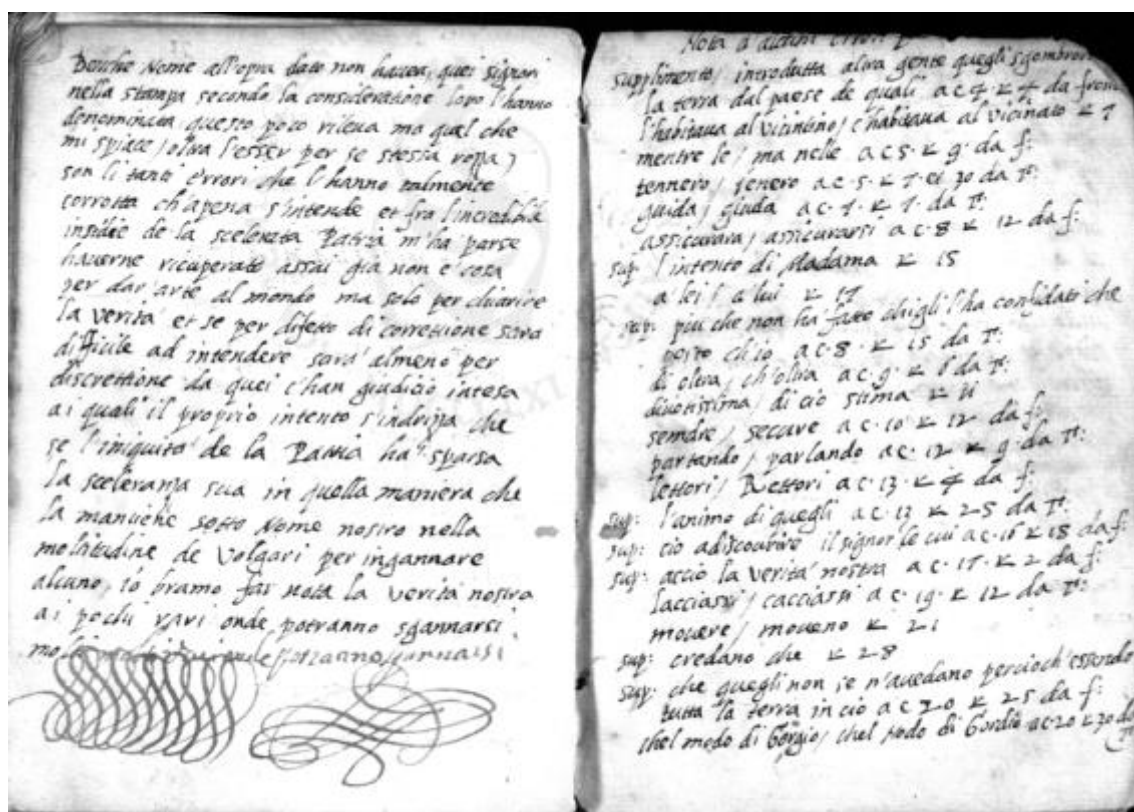 Benche Nome all'opra dato non havea, quei signori
nella stampa secondo la consideratione loro l'hanno
denominata, questo poco rileva ma quel che
mi spiace, oltra l'esser per se stessa roza,
son li tanti errori che l'hanno talmente
corrotta ch'apena s'intende et fra l'incredibili
insidie de la scelerata Patria m'ha parse
haverne ricuperato assai già non è cosa
per dar arte al mondo ma solo per chiarire
la verità et se per difetto di correttione sara
difficile ad intendere sarà almeno per
discrettione da quei c'han giudicio intesa
ai quali il proprio intento s'indriza che
se l'iniquità de la Patria ha sparsa
la sceleranza sua in quella maniera che
la mantiene sotto Nome nostro nella
moltitudine de Volgari per ingannare
alcuno, io bramo far nota la verità nostra
ai pochi rari onde potranno sgannarsi
Nota d'alcuni errori
supplimento/ introdutta altra gente quegli sgombrono
la terra dal paese de quali a c 4 K 4 da fron
l'habitava al vicintino/ c'habitava al vicinato K 7
mentre le/ ma nelle a c 5 · K 9 · da f:
tennero/ jenero a c · 5 · K 7 · et 30 da P:
guida/ giuda a c · 7 · K 7 · da P:
assicurara/ assicurarsi a c · 8 K 12 da f:
sup: l'intento di Madama K 15
a lei/ a lui K 17
sup: piu che non ha fatto chi gli l'ha confidati che
perso ch'io a c · 8 · K 15 da P:
di oltra, ch'oltra a c · 9 · K 6 da P:
divotissima/ di cio stima K 11
sembre/ secure a c · 10 · K 12 da f:
partando/ parlando a c · 12 K 9 · da P:
lettori/ Rettori a c · 13 · K 4 da f:
sup: l'animo di quegli a c · 13 K 25 da P:
sup: cio adiscourire il signor le cui a c · 16 K 18 da f:
sup: accio la verità nostra a c · 17 · K 2 da f:
lacciassi/ cacciassi a c · 19 · K 12 da P:
movere/ moveno K 21
sup: credano che K 28
sup: che quegli non se n'avedano percioch'essendo
tutta la terra in ciò a c 20 K 25 da f:
chel modo di Gorgio/ chel Nodo di Gordio a c 20 K 30 da